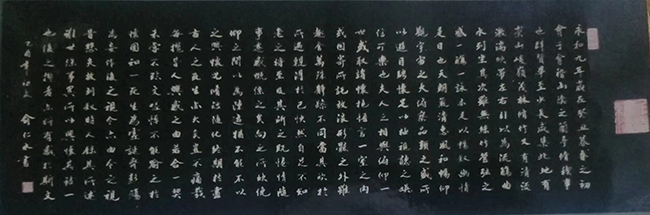 永和九年歲在癸丑暮春之初
會于會稽山陰之蘭亭脩稧事
也群賢畢至少長咸集此地有
崇山峻嶺茂林脩竹又有清流
激湍映帶左右引以為流觴曲
水列坐其次雖無絲竹管弦之
盛一觴一詠亦足以暢敘幽情
是日也天朗氣清惠風和暢仰
觀宇宙之大俯察品類之盛所
以遊目騁懷足以極視聽之娛
信可樂也夫人之相與俯仰一
世或取諸懷抱悟言一室之內
或因寄所託放浪形骸之外雖
趣舍萬殊靜躁不同當其欣於
所遇蹔得於己快然自足不知
老之將至及其所之既惓情隨
事遷感慨係之矣向之所欣俛
仰之間以為陳迹猶不能不以
之興懷況脩短隨化終期於盡
古人云死生亦大矣豈不痛哉
每攬昔人興感之由若合一契
未嘗不臨文嗟悼不能喻之於
懷固知一死生為虛誕齊彭殤
為妄作後之視今亦由今之視
昔悲夫故列敘時人錄其所述
雖世殊事異所以興懷其致一
也後之攬者亦將有感於斯文